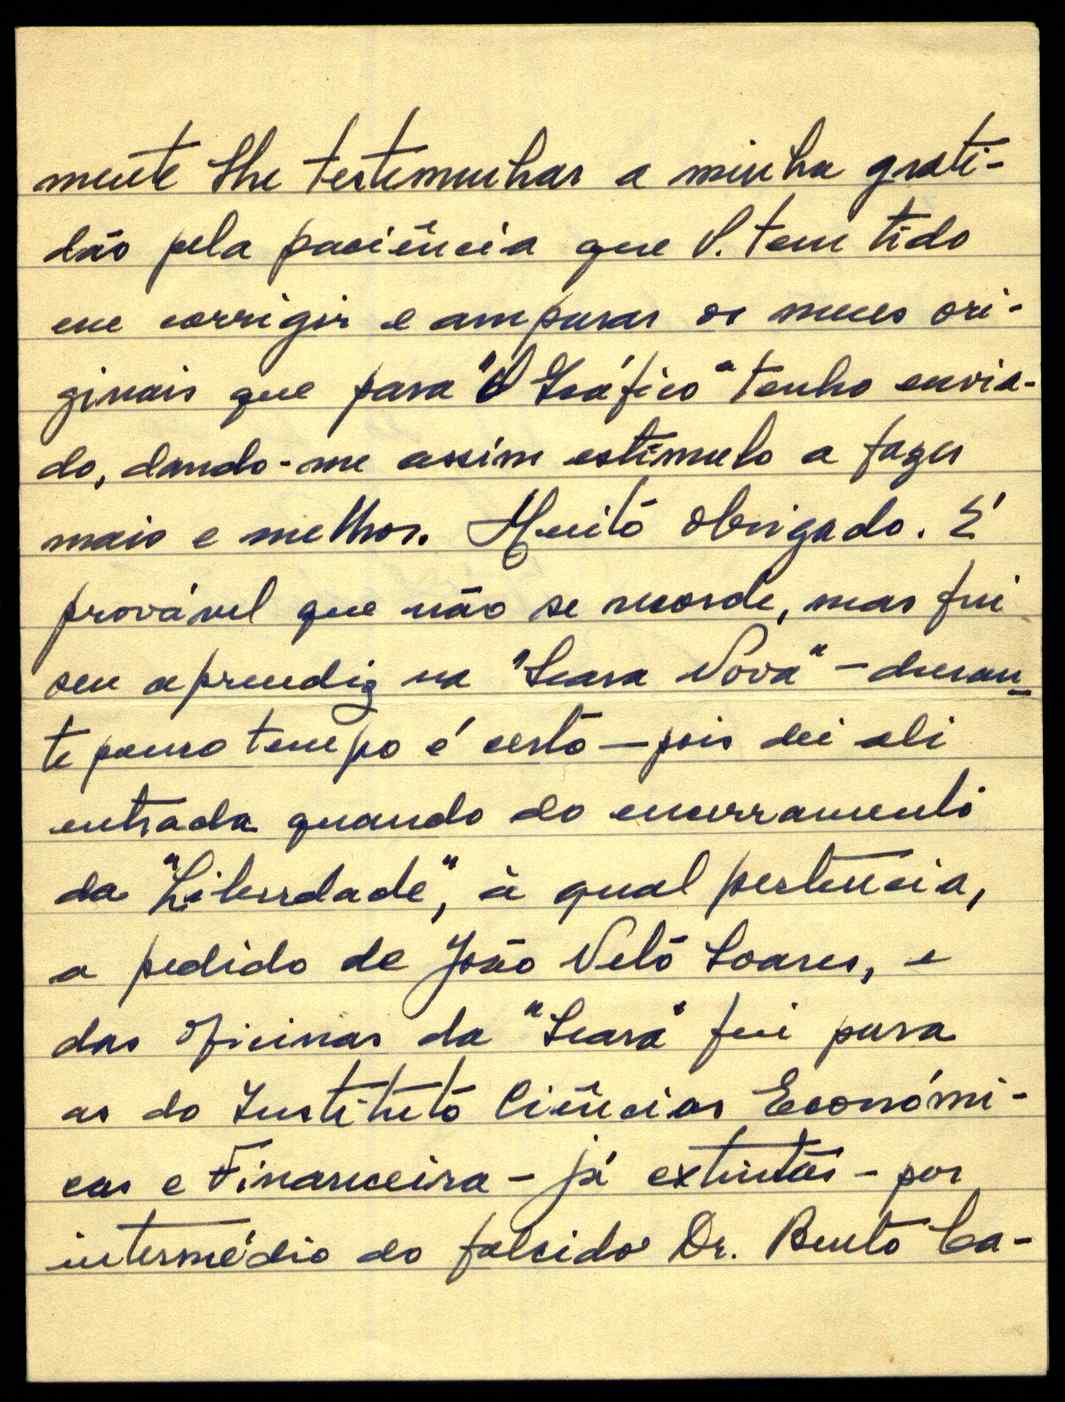 mente lhe testemunhar a minha grati-
dão pela paciência que V. tem tido
em corrigir e amparar os meus ori-
ginais que para "O Gráfico" tenho envia-
do, dando-me assim estímulo a fazer
mais e melhor. Muito obrigado. É
provável que não se recorde, mas fui
seu aprendiz na "Seara Nova" - duran-
te pouco tempo é certo - pois dei ali
entrada quando do encerramento
da "Liberdade", à qual pertencia,
a pedido de João Neto Soares, e
das oficinas da "Seara" fui para
as do Instituto Ciências Económi-
cas e Financeira - já extintas - por
intermédio do falecido Dr. Bento Ca-